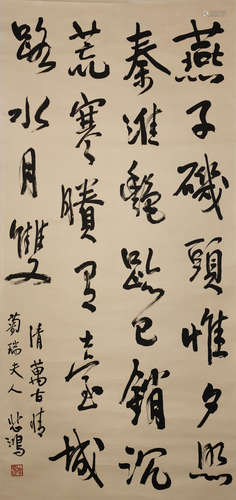 燕子磯頭惟夕照
秦淮艷跡已銷沉
荒寒賸有臺城
路水月雙
清萬古情
菊瑞夫人 悲鴻